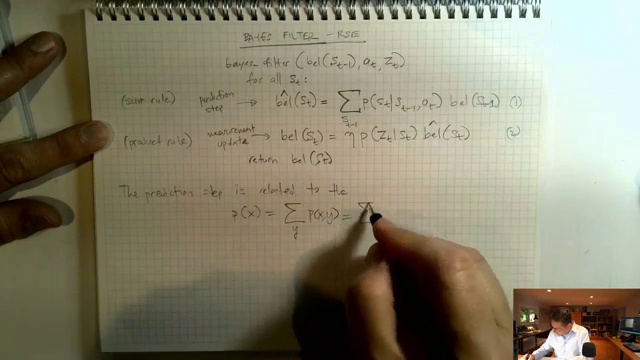 BAYES FILTER - RSE
bayes filter (bel(S_{t-1}), a_t, Z_t)
for all S_t:
(sum rule) prediction step → \hat{bel}(S_t) = \sum_{S_{t-1}} p(S_t|S_{t-1}, a_t) bel(S_{t-1}) (1)
(product rule) measurement update → bel(S_t) = η p(Z_t|S_t) \hat{bel}(S_t) (2)
return bel(S_t)
The prediction step is related to the
p(x) = \sum_y p(x,y) = Σ